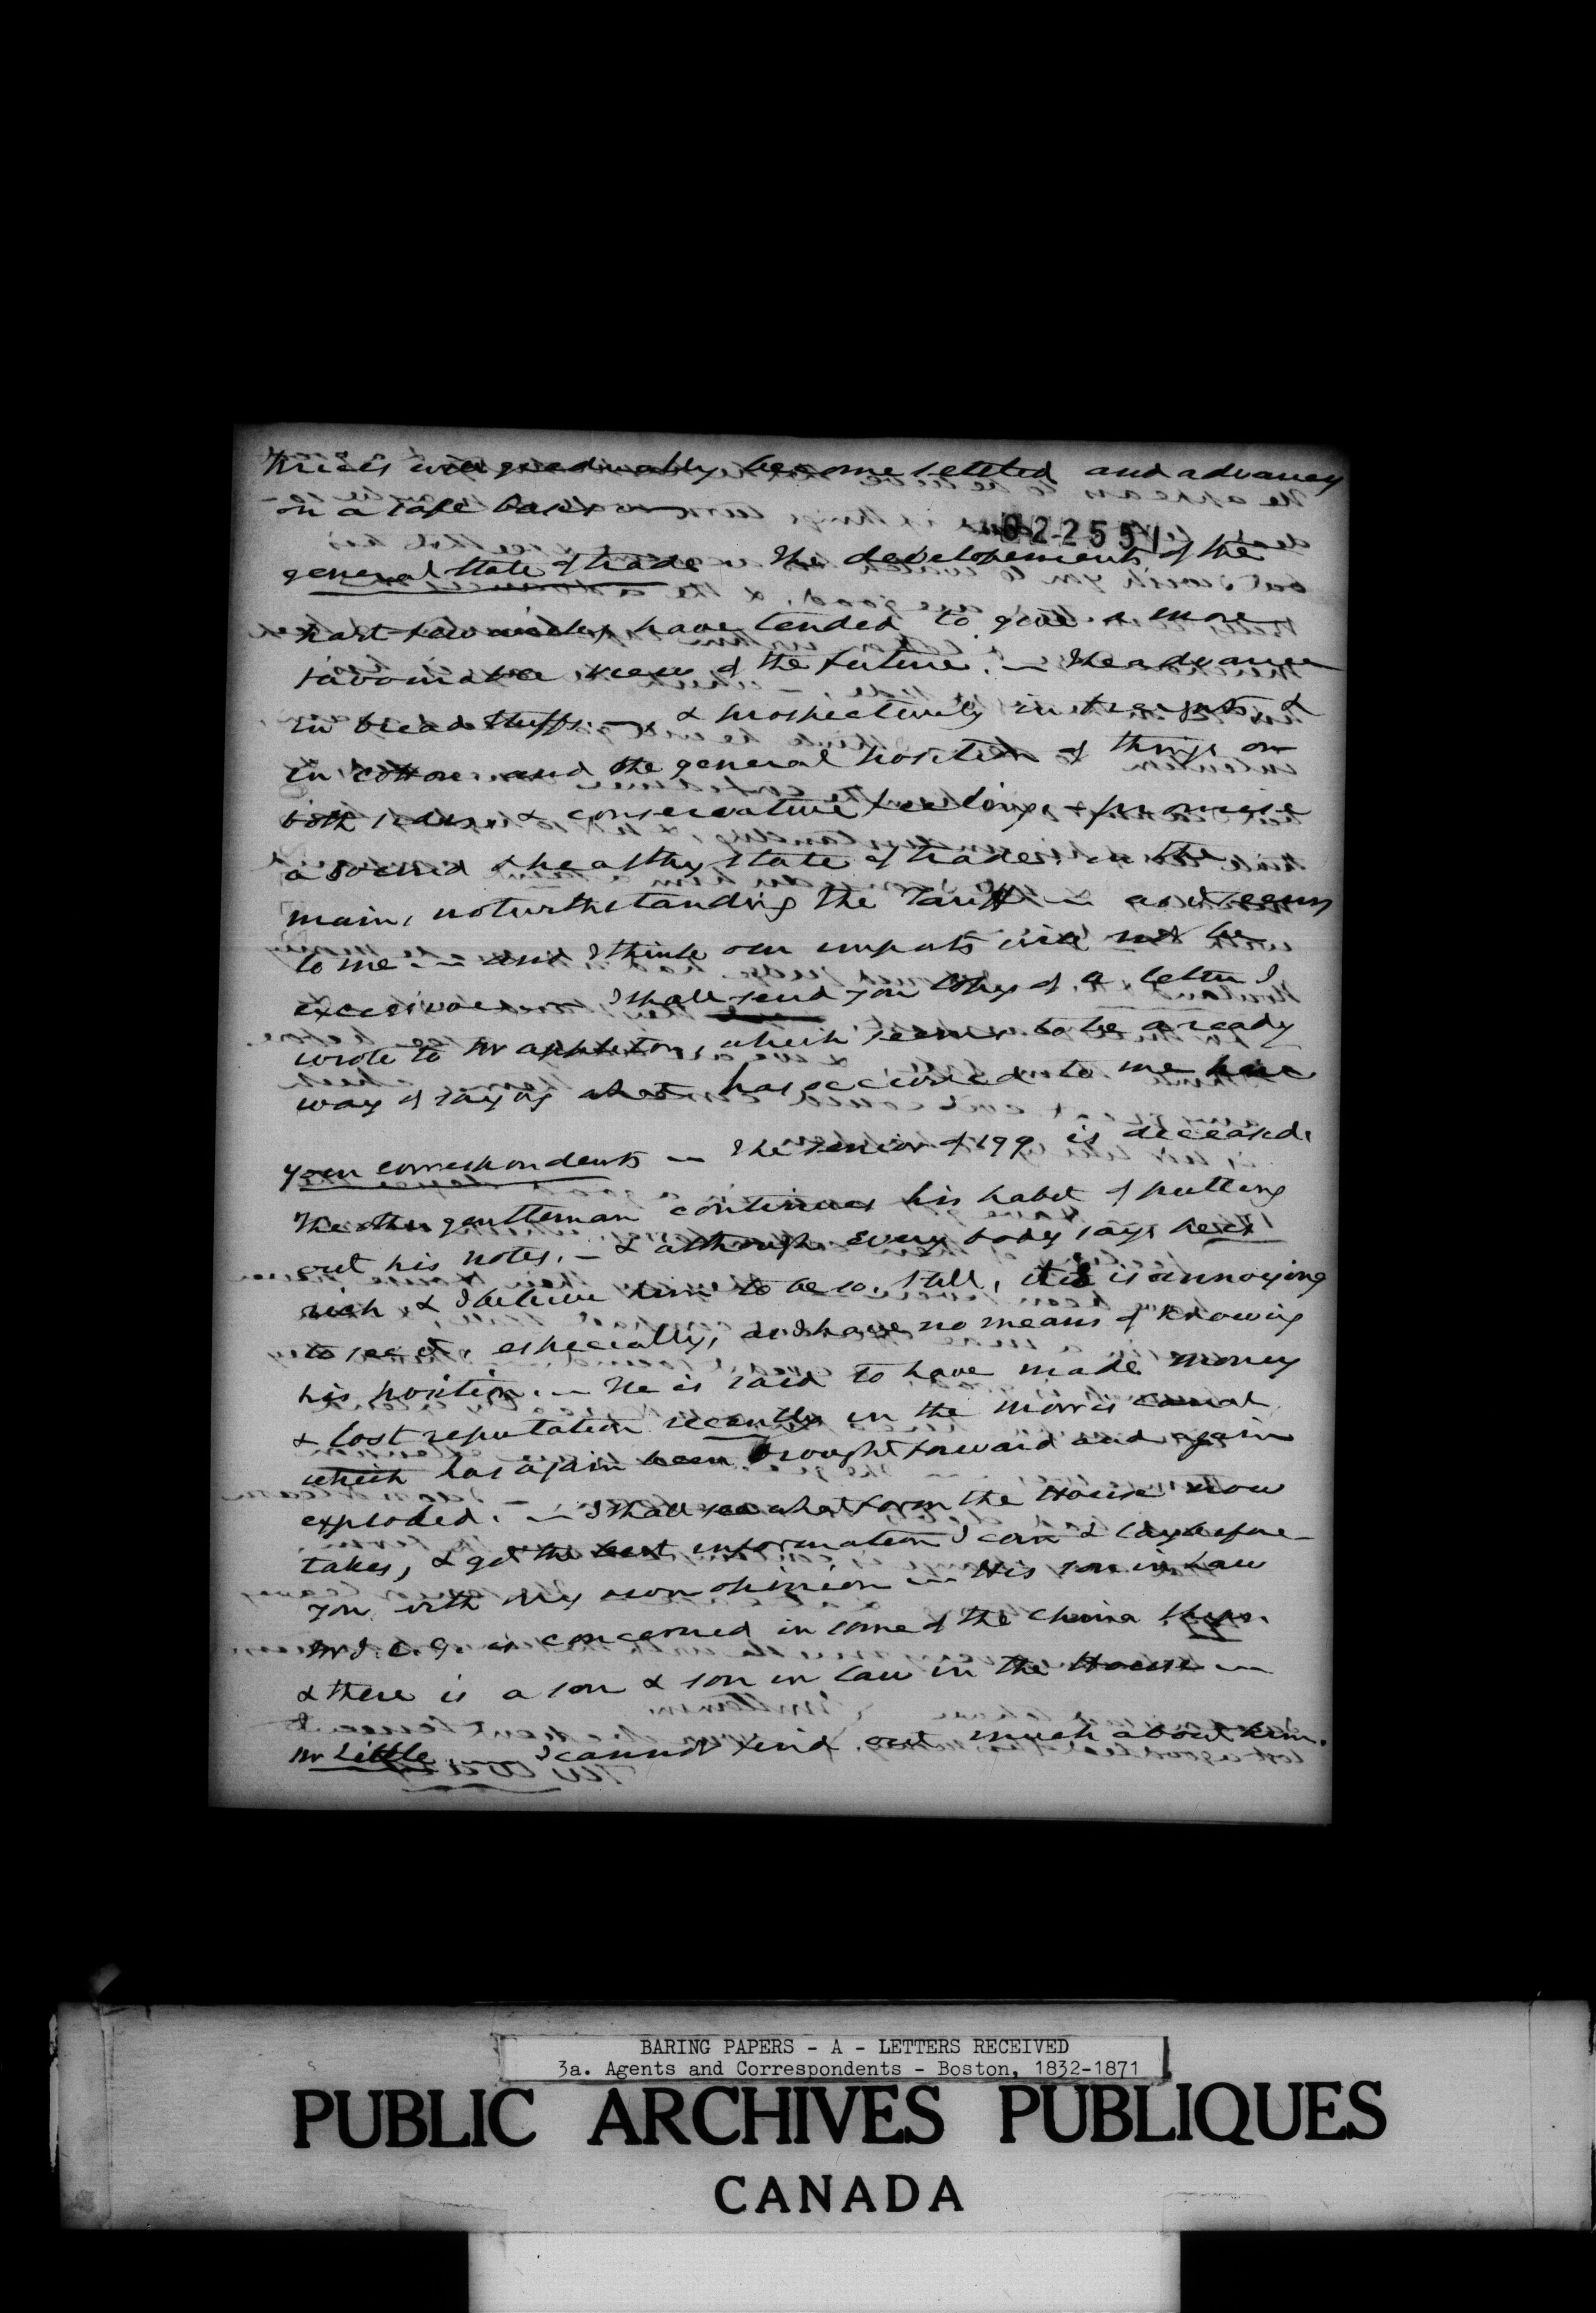 Prices will gradually become settled and advancing
on a safe basis —
022551
general state of trade The developements of the
past few weeks have tended to give a more
favourable view of the future. — The advance
in breadstuffs — & prospectively in freights &
in cotton and the general position of things on
both sides, & conservative feelings promise
a sound & healthy state of trade, in the
main, notwithstanding the Tariff — as it seems
to me — and I think our imports will not be
excessive — I shall send you Copy of a letter I
wrote to Mr Appleton, which seems to be a ready
way of saying what has occurred to me here
your correspondents — The senior of 199 is deceased,
The other gentleman continues his habit of putting
out his notes, — & although every body says he is
rich & I believe him to be so, still, it is annoying
to see it, especially, as I have no means of knowing
his position. — He is said to have made money
& lost reputation recently in the Morris canal
which has again been brought forward and again
exploded. — I shall see what form the House now
takes, & get the best information I can & lay before
you with my own opinion — His son in law
Mr J. C. G. is concerned in some of the China ships.
& there is a son & son in law in the House —
Mr Little I cannot find out much about him.
BARING PAPERS - A - LETTERS RECEIVED
3a. Agents and Correspondents - Boston, 1832-1871
PUBLIC ARCHIVES PUBLIQUES
CANADA